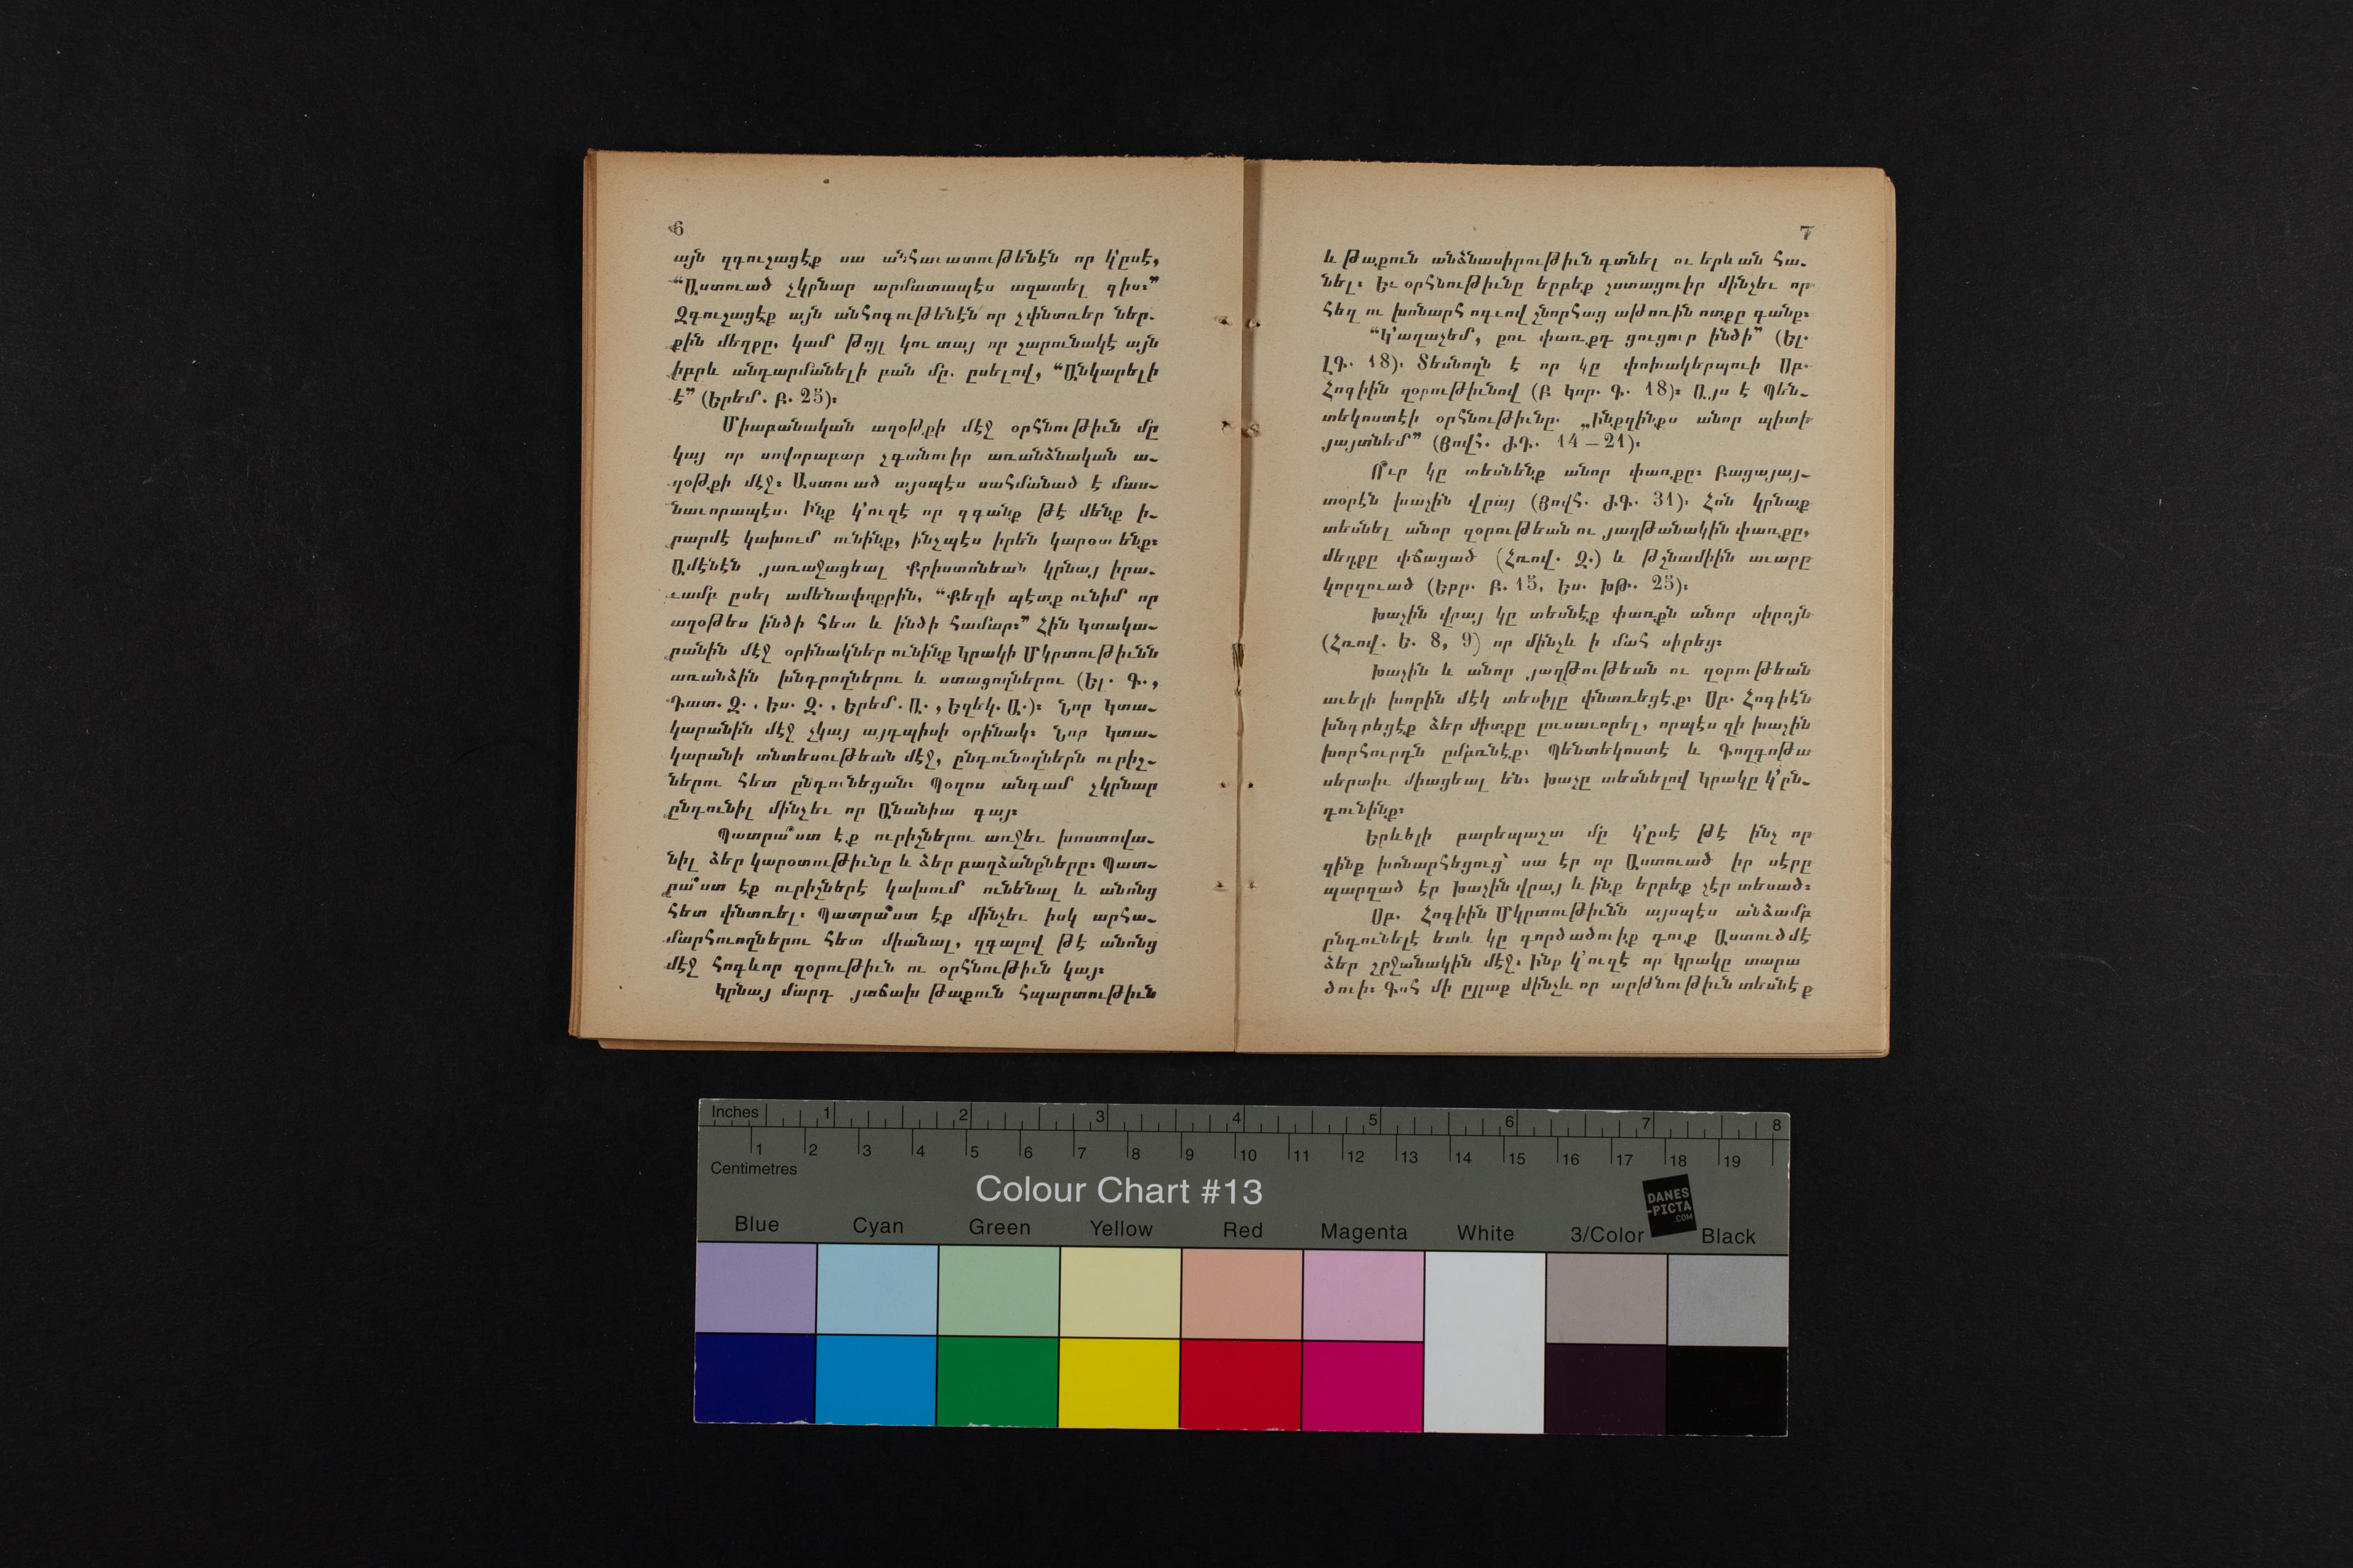 6
այն զգուշացէք սա անհաւատութենէն որ կ՚ըսէ,
“Աստուած չկրնար արմատապէս ազատել զիս։”
Զգուշացէք այն անհոգութենէն որ չփնտռեր ներ-
քին մեղքը, կամ թոյլ կու տայ որ շարունակէ այն
իբրև անդարմանելի բան մը. ըսելով, “Անկարելի
է” (Երեմ. Բ. 25)։
Միաբանական աղօթքի մէջ օրհնութիւն մը
կայ որ սովորաբար չգտնուիր առանձնական ա-
ղօթքի մէջ։ Աստուած այսպէս սահմանած է մաս-
նաւորապէս. Ինք կ՚ուզէ որ զգանք թէ մենք ի-
րարմէ կախում ունինք, ինչպէս իրեն կարօտ ենք։
Ամէնէն յառաջացեալ Քրիստոնեան կրնայ իրա-
ւամբ ըսել ամենափոքրին, “Քեզի պէտք ունիմ որ
աղօթես ինծի հետ և ինծի համար։” Հին Կտակա-
րանին մէջ օրինակներ ունինք Կրակի Մկրտութիւնն
առանձին խնդրողներու և ստացողներու (Ել. Գ.,
Դատ. Զ., Ես. Զ., Երեմ. Ա., Եզեկ. Ա.)։ Նոր Կտա-
կարանին մէջ չկայ այդպիսի օրինակ։ Նոր Կտա-
կարանի տնտեսութեան մէջ, ընդունողներն ուրիշ-
ներու հետ ընդունեցան։ Պօղոս անգամ չկրնար
ընդունիլ մինչեւ որ Անանիա գայ։
Պատրա՞ստ էք ուրիշներու առջեւ խոստովա-
նիլ ձեր կարօտութիւնը և ձեր բաղձանքները։ Պատ-
րա՞ստ էք ուրիշներէ կախում ունենալ և անոնց
հետ փնտռել։ Պատրա՞ստ էք մինչեւ իսկ արհա-
մարհուողներու հետ միանալ, զգալով թէ անոնց
մէջ հոգևոր զօրութիւն ու օրհնութիւն կայ։
Կրնայ մարդ յաճախ թաքուն հպարտութիւն
7
և թաքուն անձնասիրութիւն գտնել ու երևան հա-
նել։ Եւ օրհնութիւնը երբեք չստացուիր մինչեւ որ
հեզ ու խոնարհ ոգւով շնորհաց աթոռին ոտքը գանք։
“Կ՚աղաչեմ, քու փառքդ ցուցուր ինծի” (Ել.
ԼԳ. 18). Տեսնողն է որ կը փոխակերպուի Սբ.
Հոգիին զօրութիւնով (Բ Կոր. Գ. 18)։ Այս է Պեն-
տեկոստէի օրհնութիւնը. „Ինքզինքս անոր պիտի
յայտնեմ” (Յովհ. ԺԴ. 14 — 21)։
Ո՞ւր կը տեսնենք անոր փառքը։ Բացայայ-
տօրէն խաչին վրայ (Յովհ. ԺԳ. 31). Հոն կրնաք
տեսնել անոր զօրութեան ու յաղթանակին փառքը,
մեղքը փճացած (Հռով. Զ.) և թշնամիին աւարը
կորզուած (Եբր. Բ. 15, Ես. ԽԹ. 25)։
Խաչին վրայ կը տեսնէք փառքն անոր սիրոյն
(Հռով. Ե. 8, 9) որ մինչև ի մահ սիրեց։
Խաչին և անոր յաղթութեան ու զօրութեան
աւելի խորին մէկ տեսիլը փնտռեցէք. Սբ. Հոգիէն
խնդրեցէք ձեր միտքը լուսաւորել, որպէս զի խաչին
խորհուրդն ըմբռնէք. Պենտեկոստէ և Գողգոթա
սերտիւ միացեալ են։ Խաչը տեսնելով Կրակը կ՚ըն-
դունինք։
Երևելի բարեպաշտ մը կ՚ըսէ թէ ինչ որ
զինք խոնարհեցուց՝ սա էր որ Աստուած իր սէրը
պարզած էր խաչին վրայ և ինք երբեք չէր տեսած։
Սբ. Հոգիին Մկրտութիւնն այսպէս անձամբ
ընդունելէ ետև կը գործածուիք դուք Աստուծմէ
ձեր շրջանակին մէջ։ Ինք կ՚ուզէ որ Կրակը տարա
ծուի։ Գոհ մի ըլլաք մինչև որ արթնութիւն տեսնէք
Inches 1 2 3 4 5 6 7 8
1 2 3 4 5 6 7 8 9 10 11 12 13 14 15 16 17 18 19
Centimetres
Colour Chart #13
DANES
-PICTA
.COM
Blue Cyan Green Yellow Red Magenta White 3/Color Black